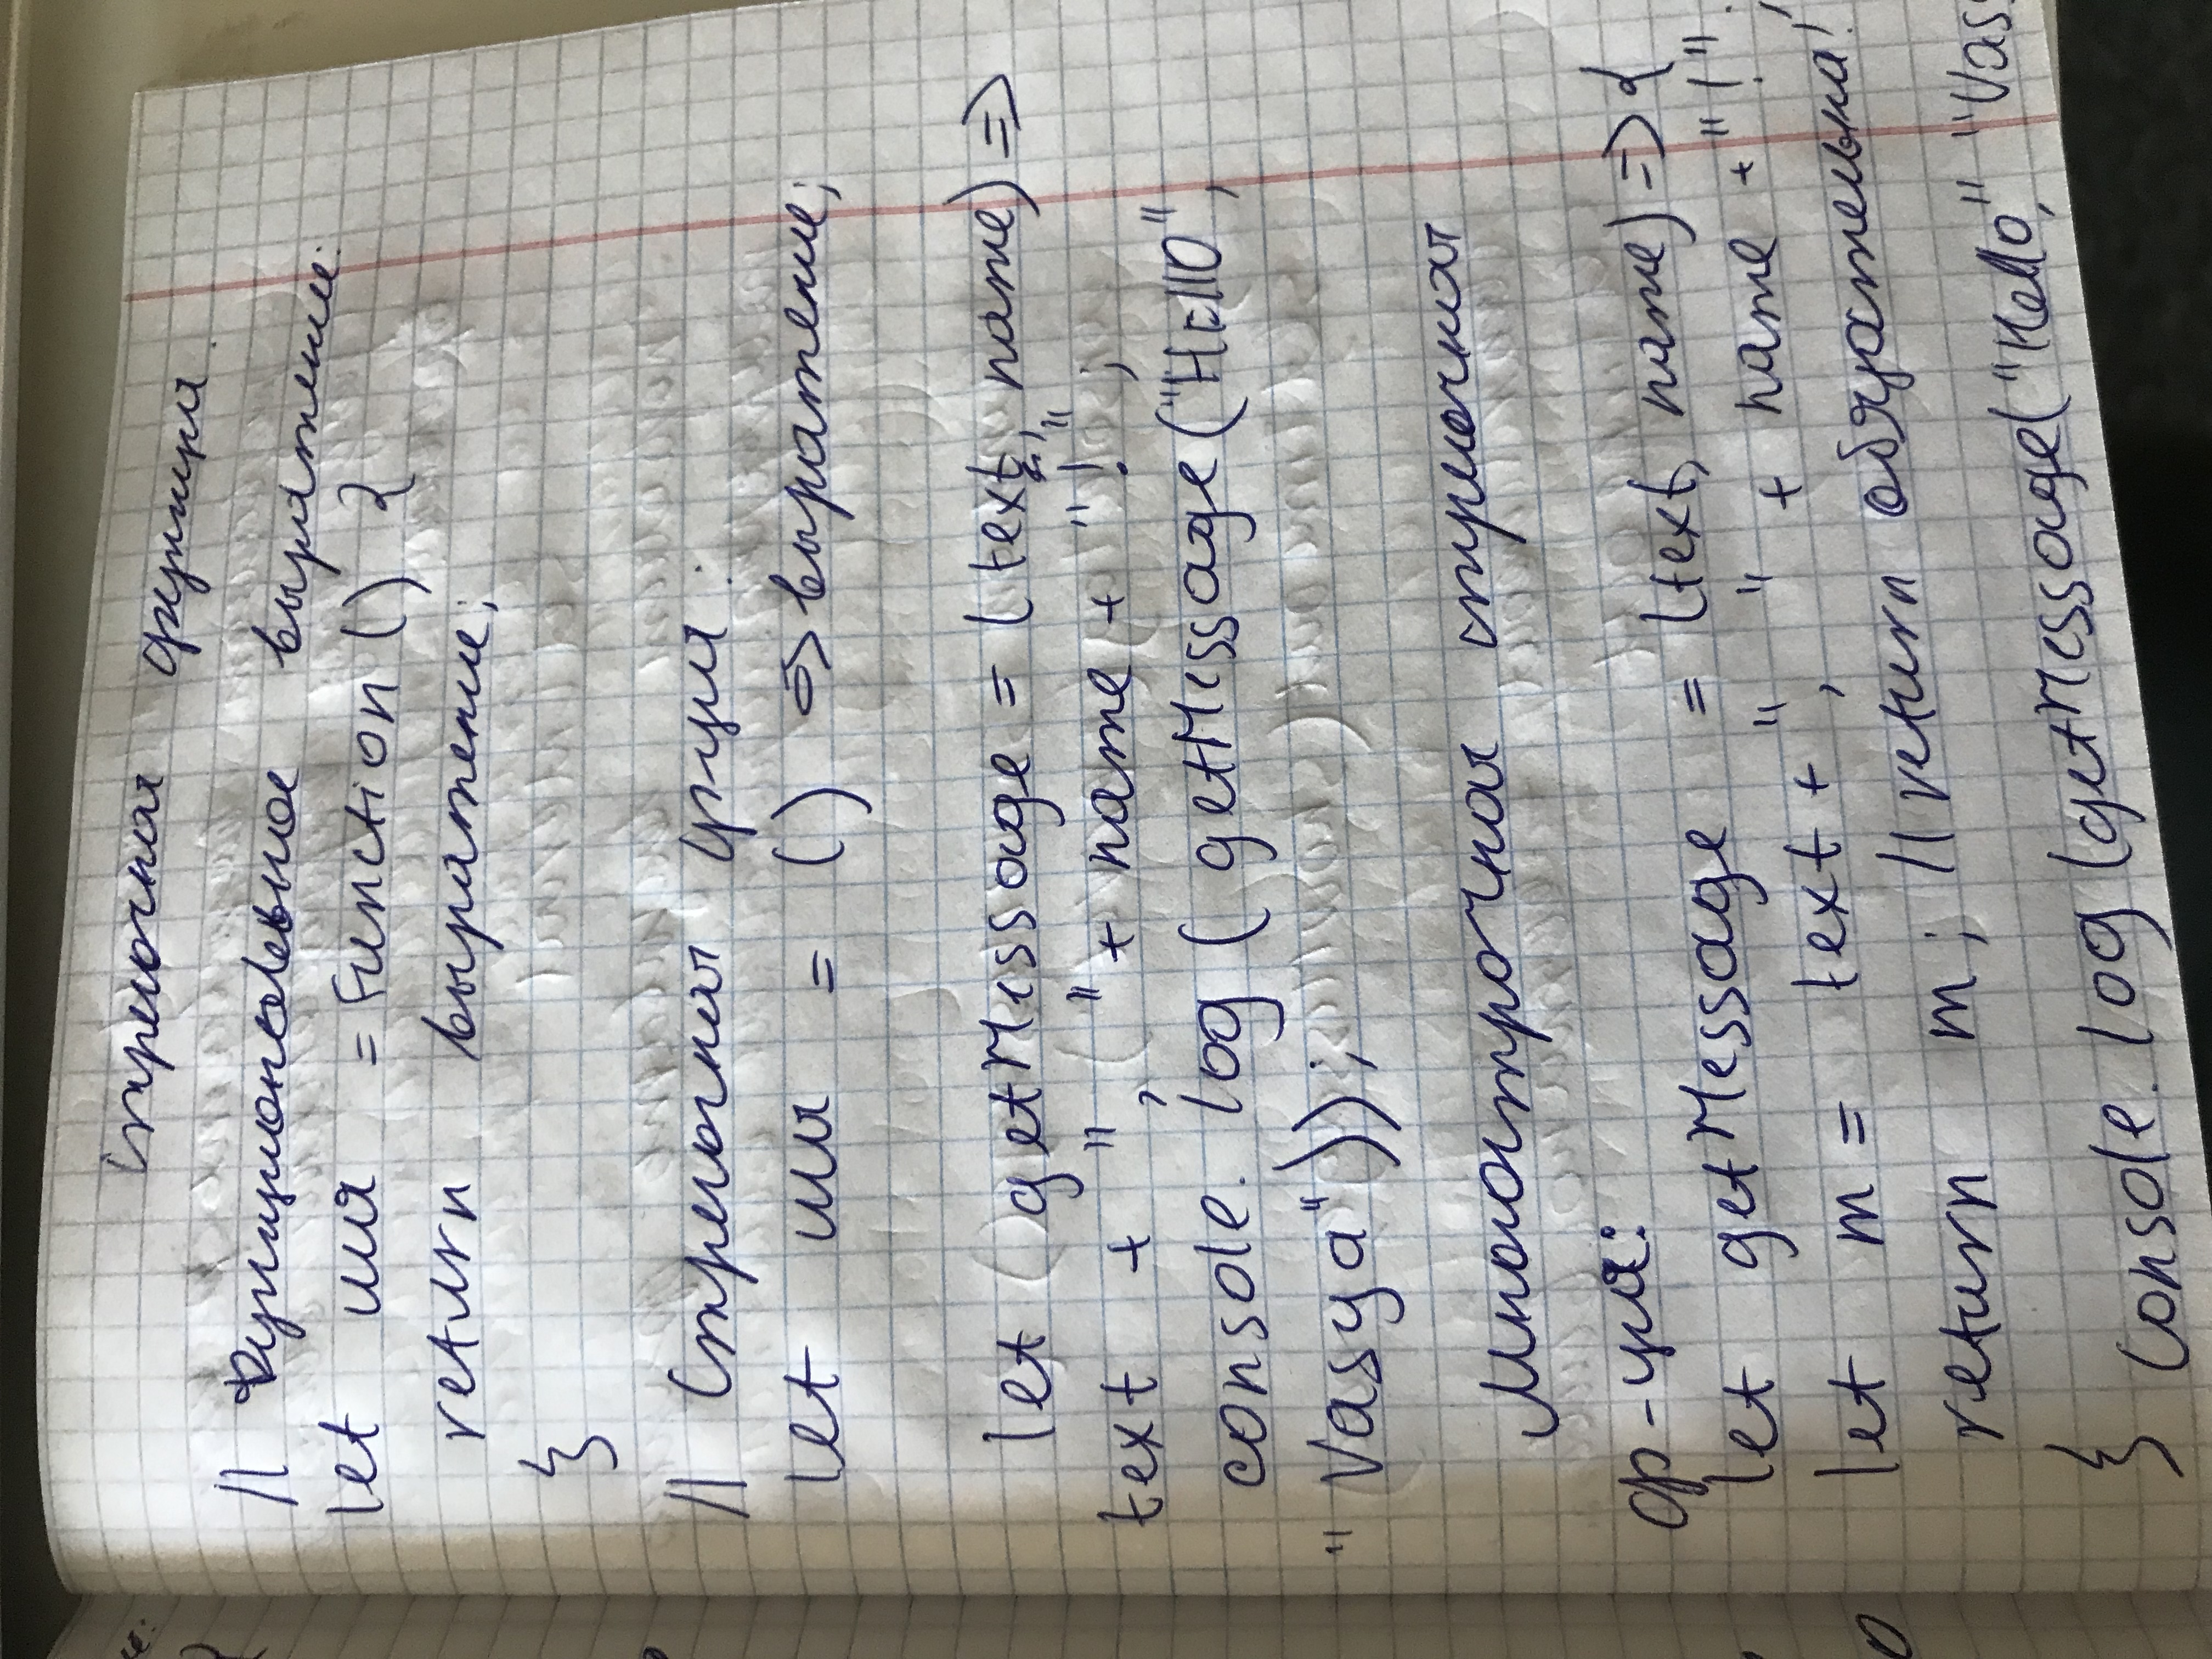 Стрелочная функция.
// Функциональное выражение:
let имя = Function () {
return выражение;
}
// Стрелочная фкция:
let имя = () => выражение;
let getMessage = (text, name) =>
text + ", " + name + "!";
console. log ( getMessage ("Hello",
"Vasya"));
Многострочная стрелочная
ф-ция:
let getMessage = (text, name) => {
let m = text + ", " + name + "!";
return m; // return обязательна!
} console. log (getMessage("Hello," "Vas